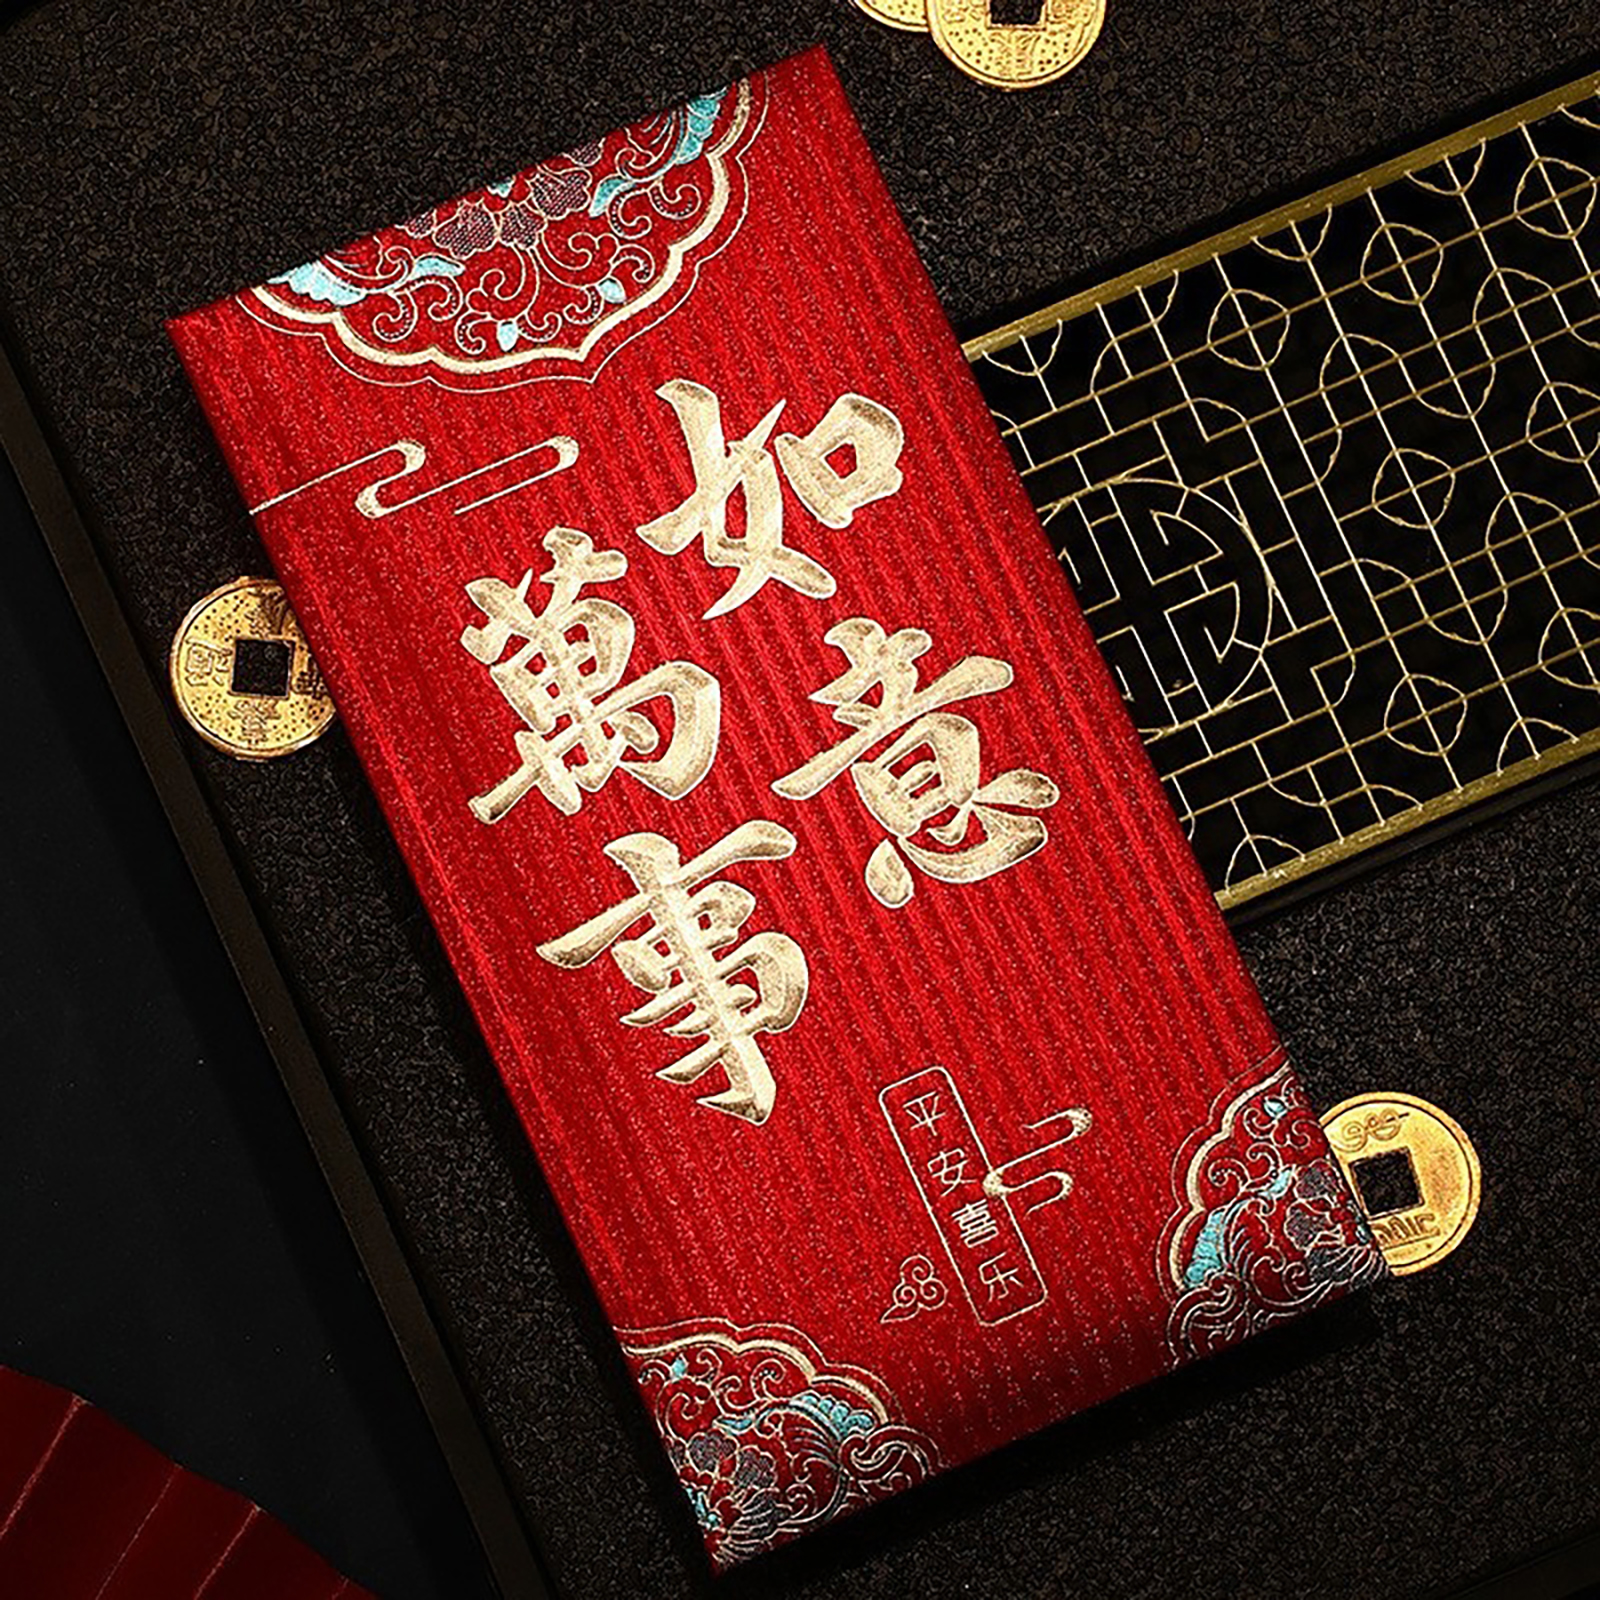 如意
萬事
平安喜乐